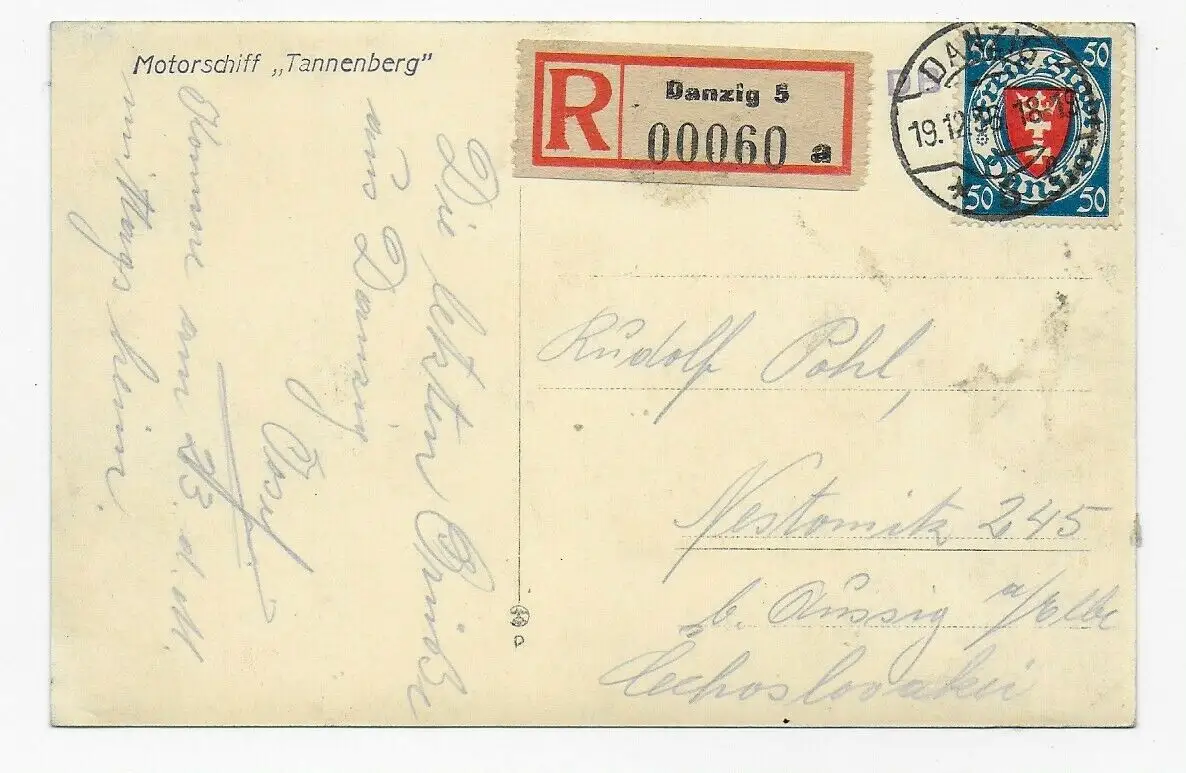 Motorschiff „Tannenberg"
R
Danzig 5
00060 a
DANZIG
19.12. 18-19
* 5
50 50
Freie Stadt
Danzig
50 50
Die letzten Grüße
aus Danzig
Josef
Komme am 23. d. M.
heim.
Rudolf Pohl,
Nestomitz 245
b. Aussig a/Elbe
Čechoslovakei